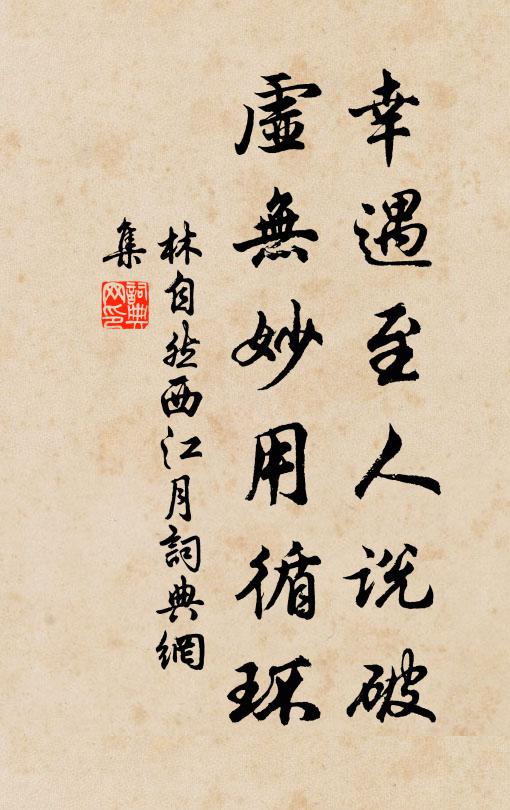 幸遇至人说破
虛無妙用循环
林自然西江月詞典網
集
詞典
网印